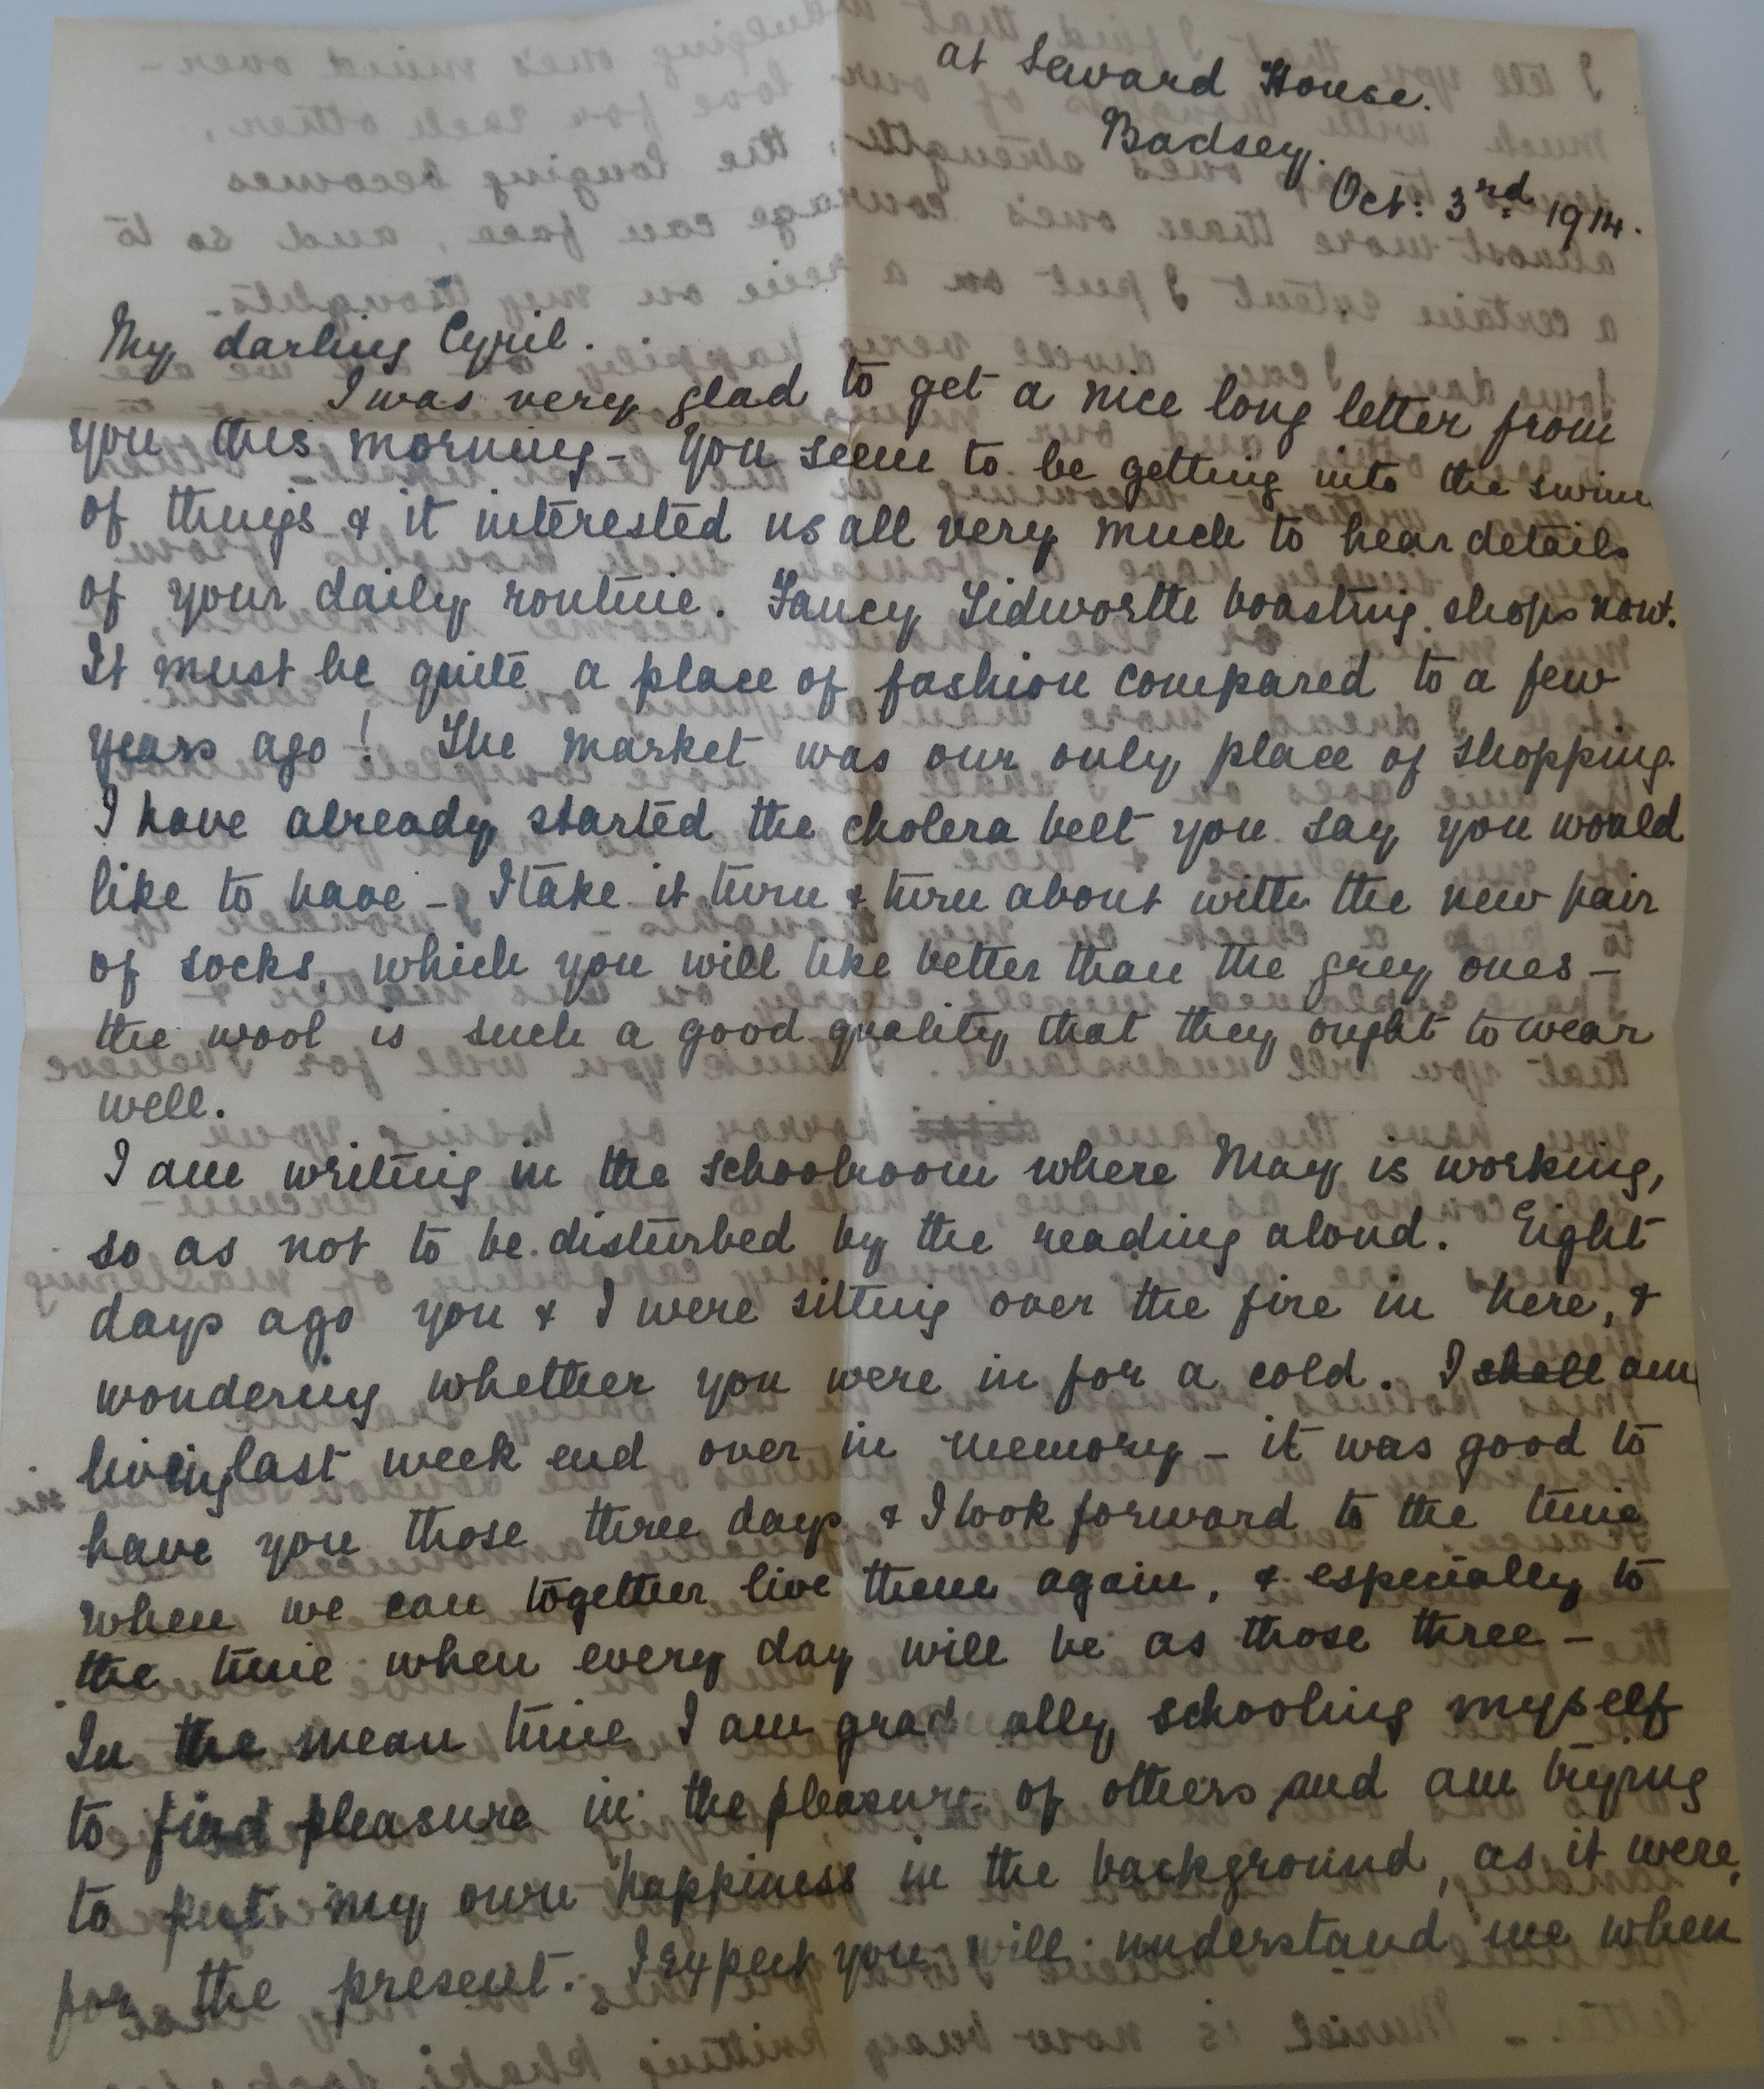 at Seward House.
Badsey.
Oct: 3rd 1914.
My darling Cyril.
I was very glad to get a nice long letter from
you this morning - You seem to be getting into the swim
of things & it interested us all very much to hear details
of your daily routine. Fancy Tidworth boasting shops now.
It must be quite a place of fashion compared to a few
years ago! The market was our only place of shopping.
I have already started the cholera belt you say you would
like to have - I take it turn & turn about with the new pair
of socks, which you will like better than the grey ones -
the wool is such a good quality that they ought to wear
well.
I am writing in the schoolroom where May is working,
so as not to be disturbed by the reading aloud. Eight
days ago you & I were sitting over the fire in here, &
wondering whether you were in for a cold. I shall am
living last week end over in memory - it was good to
have you those three days & I look forward to the time
when we can together live them again, & especially to
the time when every day will be as those three -
In the mean time I am grad ally schooling myself
to find pleasure in the pleasure of others and am trying
to put my own happiness in the background, as it were,
for the present. I expect you will understand me when